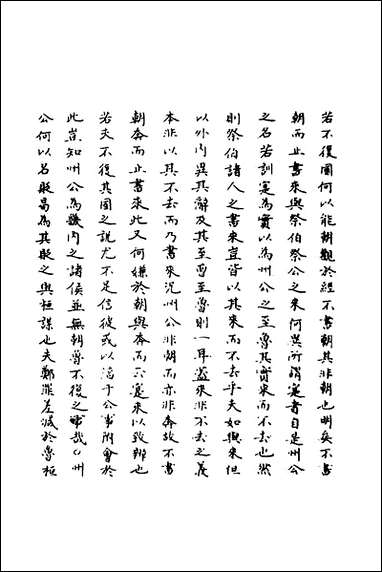 若不復國何以能朝觀於經不書朝其非朝也明矣不書
朝而止書來與祭伯祭公之來何異所謂寔者自是州公
之名若訓寔為實以為州公之至魯其實來而不去也然
則祭伯諸人之書來豈皆以其來而不去乎夫如與來但
以外內異其辭及其至曹至魯則一耳蓋來非不去之義
本非以其不去而乃書來況州公非朝而亦非奔故不書
朝奔而止書來此又何嫌於朝與奔而云寔來以致辨也
若夫不復其國之說尤不足信彼或以淳于公事附會於
此豈知州公為畿內之諸侯並無朝魯不復之事哉〇州
公何以名貶曷為其貶之與桓謀也夫鄭罪差減於魯桓